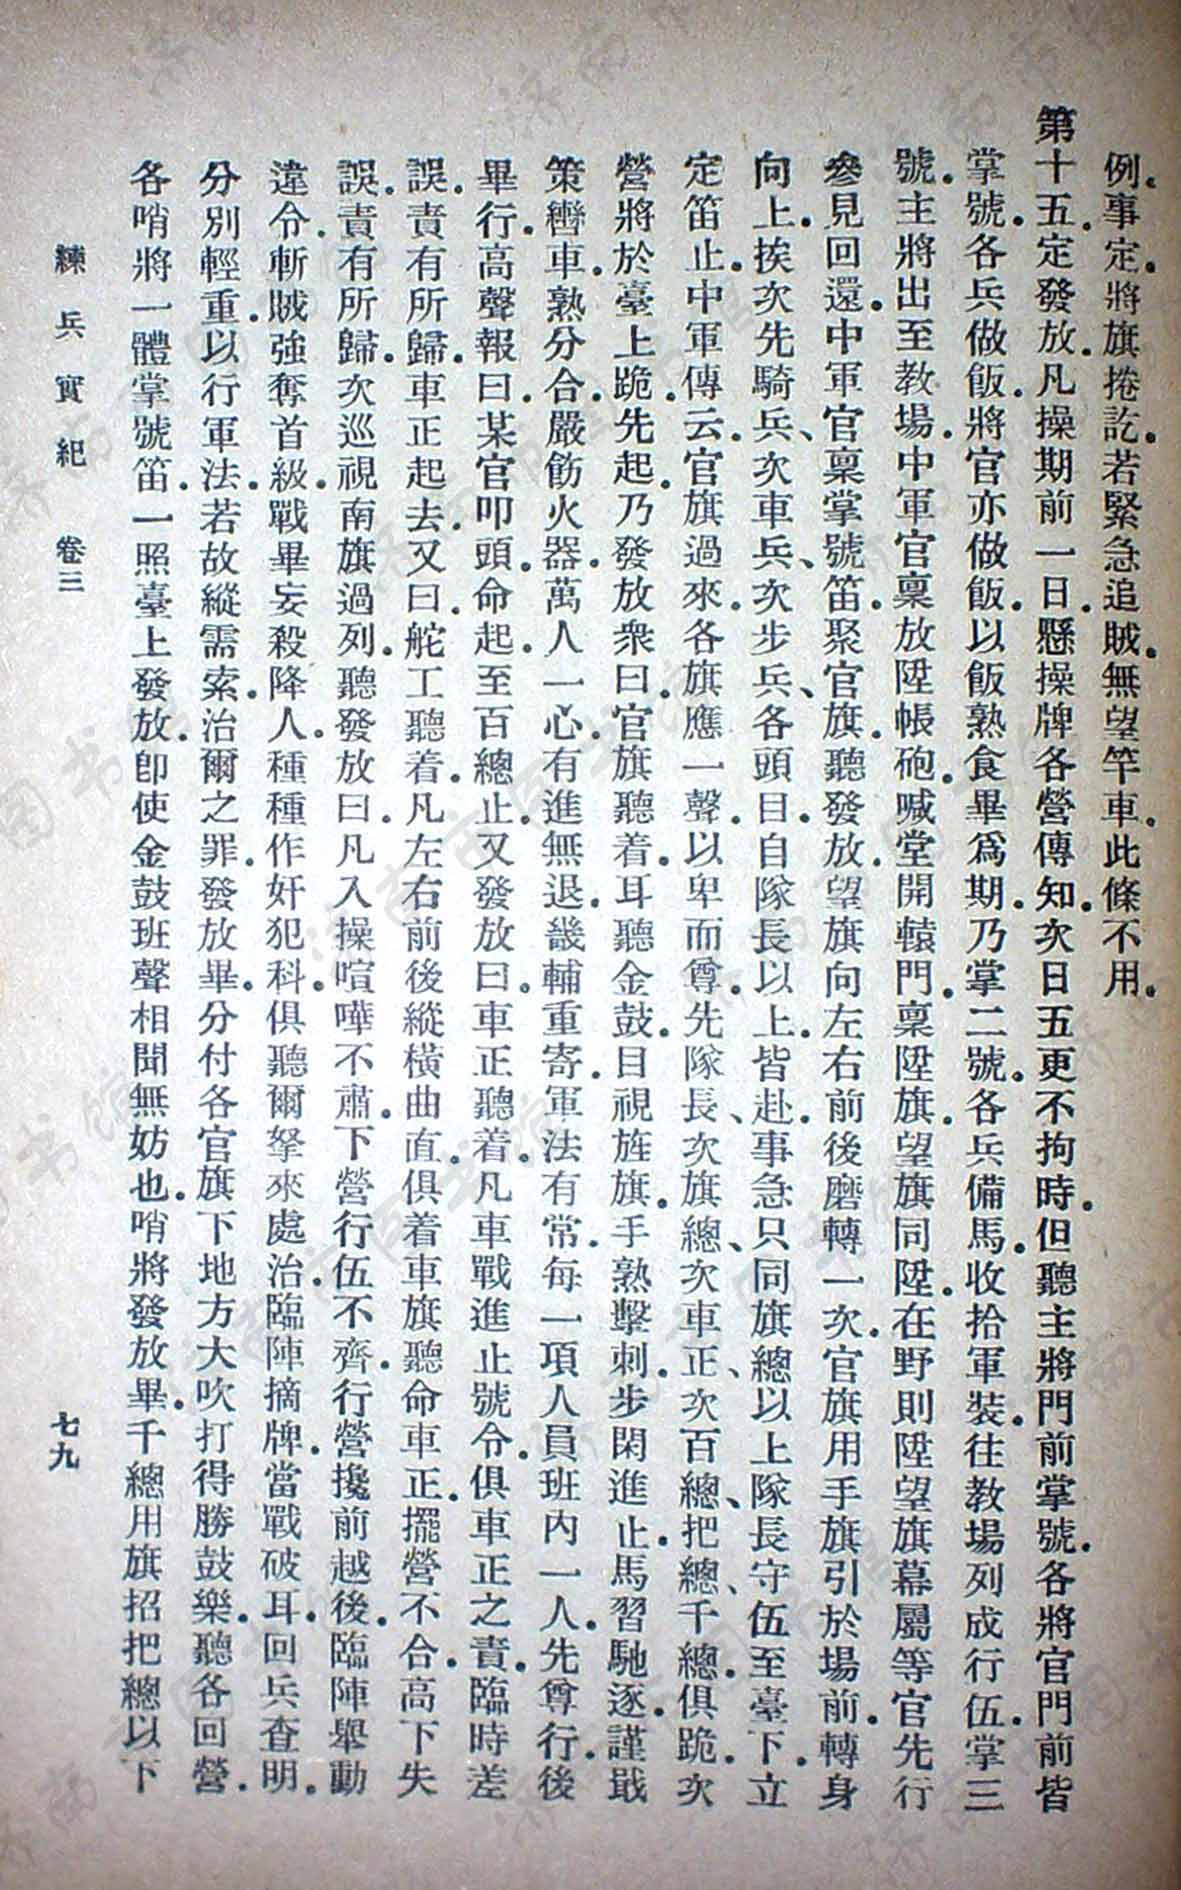 例事定。將旗捲訖。若緊急追賊。無望竿車。此條不用。
第十五。定發放。凡操期前一日。懸操牌各營傳知。次日五更不拘時。但聽主將門前掌號。各將官門前皆
掌號。各兵做飯。將官亦做飯。以飯熟食畢爲期。乃掌二號。各兵備馬。收拾軍裝。往教場列成行伍。掌三
號。主將出至教場。中軍官稟放陞帳砲。喊堂開轅門。稟陞旗。望旗同陞。在野則陞望旗幕屬等官先行
參見回還。中軍官稟掌號笛。聚官旗。聽發放。望旗向左右前後磨轉一次。官旗用手旗引於場前。轉身
向上。挨次先騎兵、次車兵、次步兵、各頭目。自隊長以上。皆赴。事急只同旗總以上隊長守伍至臺下。立
定笛止。中軍傳云。官旗過來。各旗應一聲。以卑而尊。先隊長、次旗總、次車正、次百總、把總、千總。俱跪。次
營將於臺上跪。先起。乃發放衆曰。官旗聽着。耳聽金鼓。目視旌旗。手熟擊刺。步閑進止。馬習馳逐。謹戢
策轡。車熟分合。嚴飭火器。萬人一心。有進無退。畿輔重寄。軍法有常。每一項人員班內一人。先尊行。後
畢行。高聲報曰。某官叩頭。命起。至百總止。又發放曰。車正聽着。凡車戰進止號令。俱車正之責。臨時差
誤。責有所歸。車正起去。又曰。舵工聽着。凡左右前後縱橫曲直。俱着車旗聽命車正。擺營不合。高下失
誤。責有所歸。次巡視南旗過列。聽發放曰。凡入操喧嘩不肅。下營行伍不齊。行營攙前越後。臨陣舉動
違令。斬賊強奪首級。戰畢妄殺降人。種種作奸犯科。俱聽爾拏來處治。臨陣摘牌。當戰破耳。回兵查明。
分別輕重。以行軍法。若故縱需索。治爾之罪。發放畢。分付各官旗下地方。大吹打得勝鼓樂。聽各回營。
各哨將一體掌號笛。一照臺上發放。卽使金鼓班聲相聞無妨也。哨將發放畢。千總用旗招把總以下
練兵實紀 卷三
七九